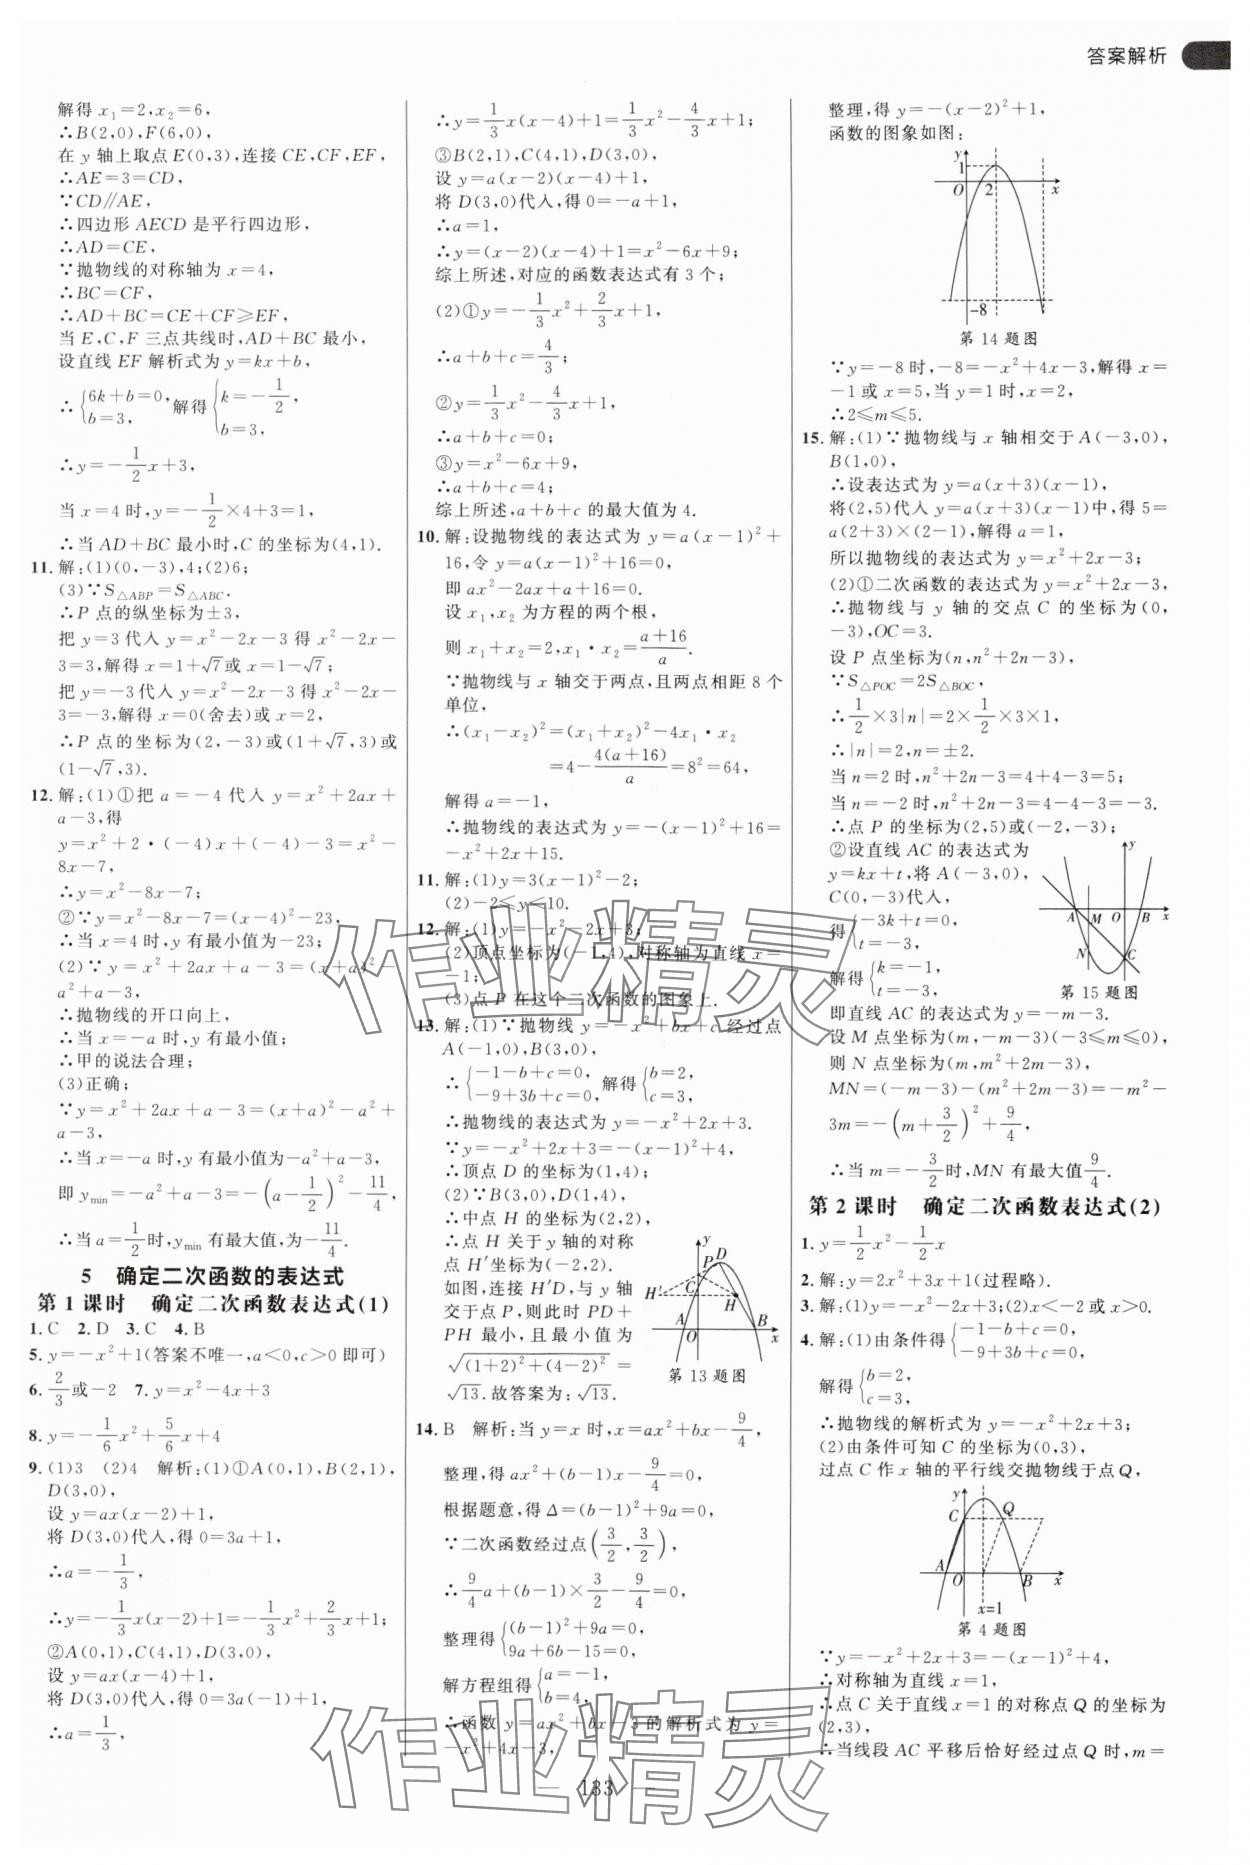 答案解析
解得 x₁=2,x₂=6,
∴B(2,0),F(6,0),
在 y 轴上取点 E(0,3),连接 CE,CF,EF,
∴AE=3=CD,
∵CD∥AE,
∴四边形 AECD 是平行四边形,
∴AD=CE,
∵抛物线的对称轴为 x=4,
∴BC=CF,
∴AD+BC=CE+CF≥EF,
当 E,C,F 三点共线时,AD+BC 最小,
设直线 EF 解析式为 y=kx+b,
∴{6k+b=0, b=3, 解得{k=-1/2, b=3,
∴y=-1/2x+3,
当 x=4 时,y=-1/2×4+3=1,
∴当 AD+BC 最小时,C 的坐标为(4,1).
11. 解:(1)(0,-3),4;(2)6;
(3)∵S△ABP=S△ABC.
∴P 点的纵坐标为±3,
把 y=3 代入 y=x²-2x-3 得 x²-2x-
3=3,解得 x=1+√7或 x=1-√7;
把 y=-3 代入 y=x²-2x-3 得 x²-2x-
3=-3,解得 x=0(舍去)或 x=2,
∴P 点的坐标为(2,-3)或(1+√7,3)或
(1-√7,3).
12. 解:(1)①把 a=-4 代入 y=x²+2ax+
a-3,得
y=x²+2·(-4)x+(-4)-3=x²-
8x-7,
∴y=x²-8x-7;
②∵y=x²-8x-7=(x-4)²-23,
∴当 x=4 时,y 有最小值为-23;
(2)∵y=x²+2ax+a-3=(x+a)²-
a²+a-3,
∴抛物线的开口向上,
∴当 x=-a 时,y 有最小值;
∴甲的说法合理;
(3)正确;
∵y=x²+2ax+a-3=(x+a)²-a²+
a-3,
∴当 x=-a 时,y 有最小值为-a²+a-3,
即 yₘᵢₙ=-a²+a-3=-(a-1/2)²-11/4,
∴当 a=1/2时,yₘᵢₙ有最大值,为-11/4.
5 确定二次函数的表达式
第 1 课时 确定二次函数表达式(1)
1. C 2. D 3. C 4. B
5. y=-x²+1(答案不唯一,a<0,c>0 即可)
6. 2/3或-2 7. y=x²-4x+3
8. y=-1/6x²+5/6x+4
9. (1)3 (2)4 解析:(1)①A(0,1),B(2,1),
D(3,0),
设 y=ax(x-2)+1,
将 D(3,0)代入,得 0=3a+1,
∴a=-1/3,
∴y=-1/3x(x-2)+1=-1/3x²+2/3x+1;
②A(0,1),C(4,1),D(3,0),
设 y=ax(x-4)+1,
将 D(3,0)代入,得 0=3a(-1)+1,
∴a=1/3,
∴y=1/3x(x-4)+1=1/3x²-4/3x+1;
③B(2,1),C(4,1),D(3,0),
设 y=a(x-2)(x-4)+1,
将 D(3,0)代入,得 0=-a+1,
∴a=1,
∴y=(x-2)(x-4)+1=x²-6x+9;
综上所述,对应的函数表达式有 3 个;
(2)①y=-1/3x²+2/3x+1,
∴a+b+c=4/3;
②y=1/3x²-4/3x+1,
∴a+b+c=0;
③y=x²-6x+9,
∴a+b+c=4;
综上所述,a+b+c 的最大值为 4.
10. 解:设抛物线的表达式为 y=a(x-1)²+
16,令 y=a(x-1)²+16=0,
即 ax²-2ax+a+16=0,
设 x₁,x₂ 为方程的两个根,
则 x₁+x₂=2,x₁·x₂=(a+16)/a.
∵抛物线与 x 轴交于两点,且两点相距 8 个
单位,
∴(x₁-x₂)²=(x₁+x₂)²-4x₁·x₂
=4-4(a+16)/a=8²=64,
解得 a=-1,
∴抛物线的表达式为 y=-(x-1)²+16=
-x²+2x+15.
11. 解:(1)y=3(x-1)²-2;
(2)-2≤y≤10.
12. 解:(1)y=-x²-2x+3;
(2)顶点坐标为(-1,4),对称轴为直线 x=
-1;
(3)点 P 在这个二次函数的图象上.
13. 解:(1)∵抛物线 y=-x²+bx+c 经过点
A(-1,0),B(3,0),
∴{-1-b+c=0, -9+3b+c=0, 解得{b=2, c=3,
∴抛物线的表达式为 y=-x²+2x+3.
∵y=-x²+2x+3=-(x-1)²+4,
∴顶点 D 的坐标为(1,4);
(2)∵B(3,0),D(1,4),
∴中点 H 的坐标为(2,2),
∴点 H 关于 y 轴的对称
点 H′坐标为(-2,2).
如图,连接 H′D,与 y 轴
交于点 P,则此时 PD+
PH 最小,且最小值为
√((1+2)²+(4-2)²)=
√13. 故答案为:√13.
y P D H′ C H A O B x
第 13 题图
14. B 解析:当 y=x 时,x=ax²+bx-9/4,
整理,得 ax²+(b-1)x-9/4=0,
根据题意,得 Δ=(b-1)²+9a=0,
∵二次函数经过点(3/2,3/2),
∴9/4a+(b-1)×3/2-9/4=0,
整理得{(b-1)²+9a=0, 9a+6b-15=0,
解方程组得{a=-1, b=4,
∴函数 y=ax²+bx-3 的解析式为 y=
-x²+4x-3,
整理,得 y=-(x-2)²+1,
函数的图象如图:
y 1 O 2 x -8
第 14 题图
∵y=-8 时,-8=-x²+4x-3,解得 x=
-1 或 x=5,当 y=1 时,x=2,
∴2≤m≤5.
15. 解:(1)∵抛物线与 x 轴相交于 A(-3,0),
B(1,0),
∴设表达式为 y=a(x+3)(x-1),
将(2,5)代入 y=a(x+3)(x-1)中,得 5=
a(2+3)×(2-1),解得 a=1,
所以抛物线的表达式为 y=x²+2x-3;
(2)①二次函数的表达式为 y=x²+2x-3,
∴抛物线与 y 轴的交点 C 的坐标为(0,
-3),OC=3.
设 P 点坐标为(n,n²+2n-3),
∵S△POC=2S△BOC,
∴1/2×3|n|=2×1/2×3×1,
∴|n|=2,n=±2.
当 n=2 时,n²+2n-3=4+4-3=5;
当 n=-2 时,n²+2n-3=4-4-3=-3.
∴点 P 的坐标为(2,5)或(-2,-3);
②设直线 AC 的表达式为
y=kx+t,将 A(-3,0),
C(0,-3)代入,
得{-3k+t=0, t=-3,
解得{k=-1, t=-3,
y A M O B x N C
第 15 题图
即直线 AC 的表达式为 y=-x-3.
设 M 点坐标为(m,-m-3)(-3≤m≤0),
则 N 点坐标为(m,m²+2m-3),
MN=(-m-3)-(m²+2m-3)=-m²-
3m=-(m+3/2)²+9/4,
∴当 m=-3/2时,MN 有最大值9/4.
第 2 课时 确定二次函数表达式(2)
1. y=1/2x²-1/2x
2. 解:y=2x²+3x+1(过程略).
3. 解:(1)y=-x²-2x+3;(2)x<-2 或 x>0.
4. 解:(1)由条件得{-1-b+c=0, -9+3b+c=0,
解得{b=2, c=3,
∴抛物线的解析式为 y=-x²+2x+3;
(2)由条件可知 C 的坐标为(0,3),
过点 C 作 x 轴的平行线交抛物线于点 Q,
y C Q A O B x x=1
第 4 题图
∵y=-x²+2x+3=-(x-1)²+4,
∴对称轴为直线 x=1,
∴点 C 关于直线 x=1 的对称点 Q 的坐标为
(2,3),
∴当线段 AC 平移后恰好经过点 Q 时,m=
133
作业精灵
作业精灵